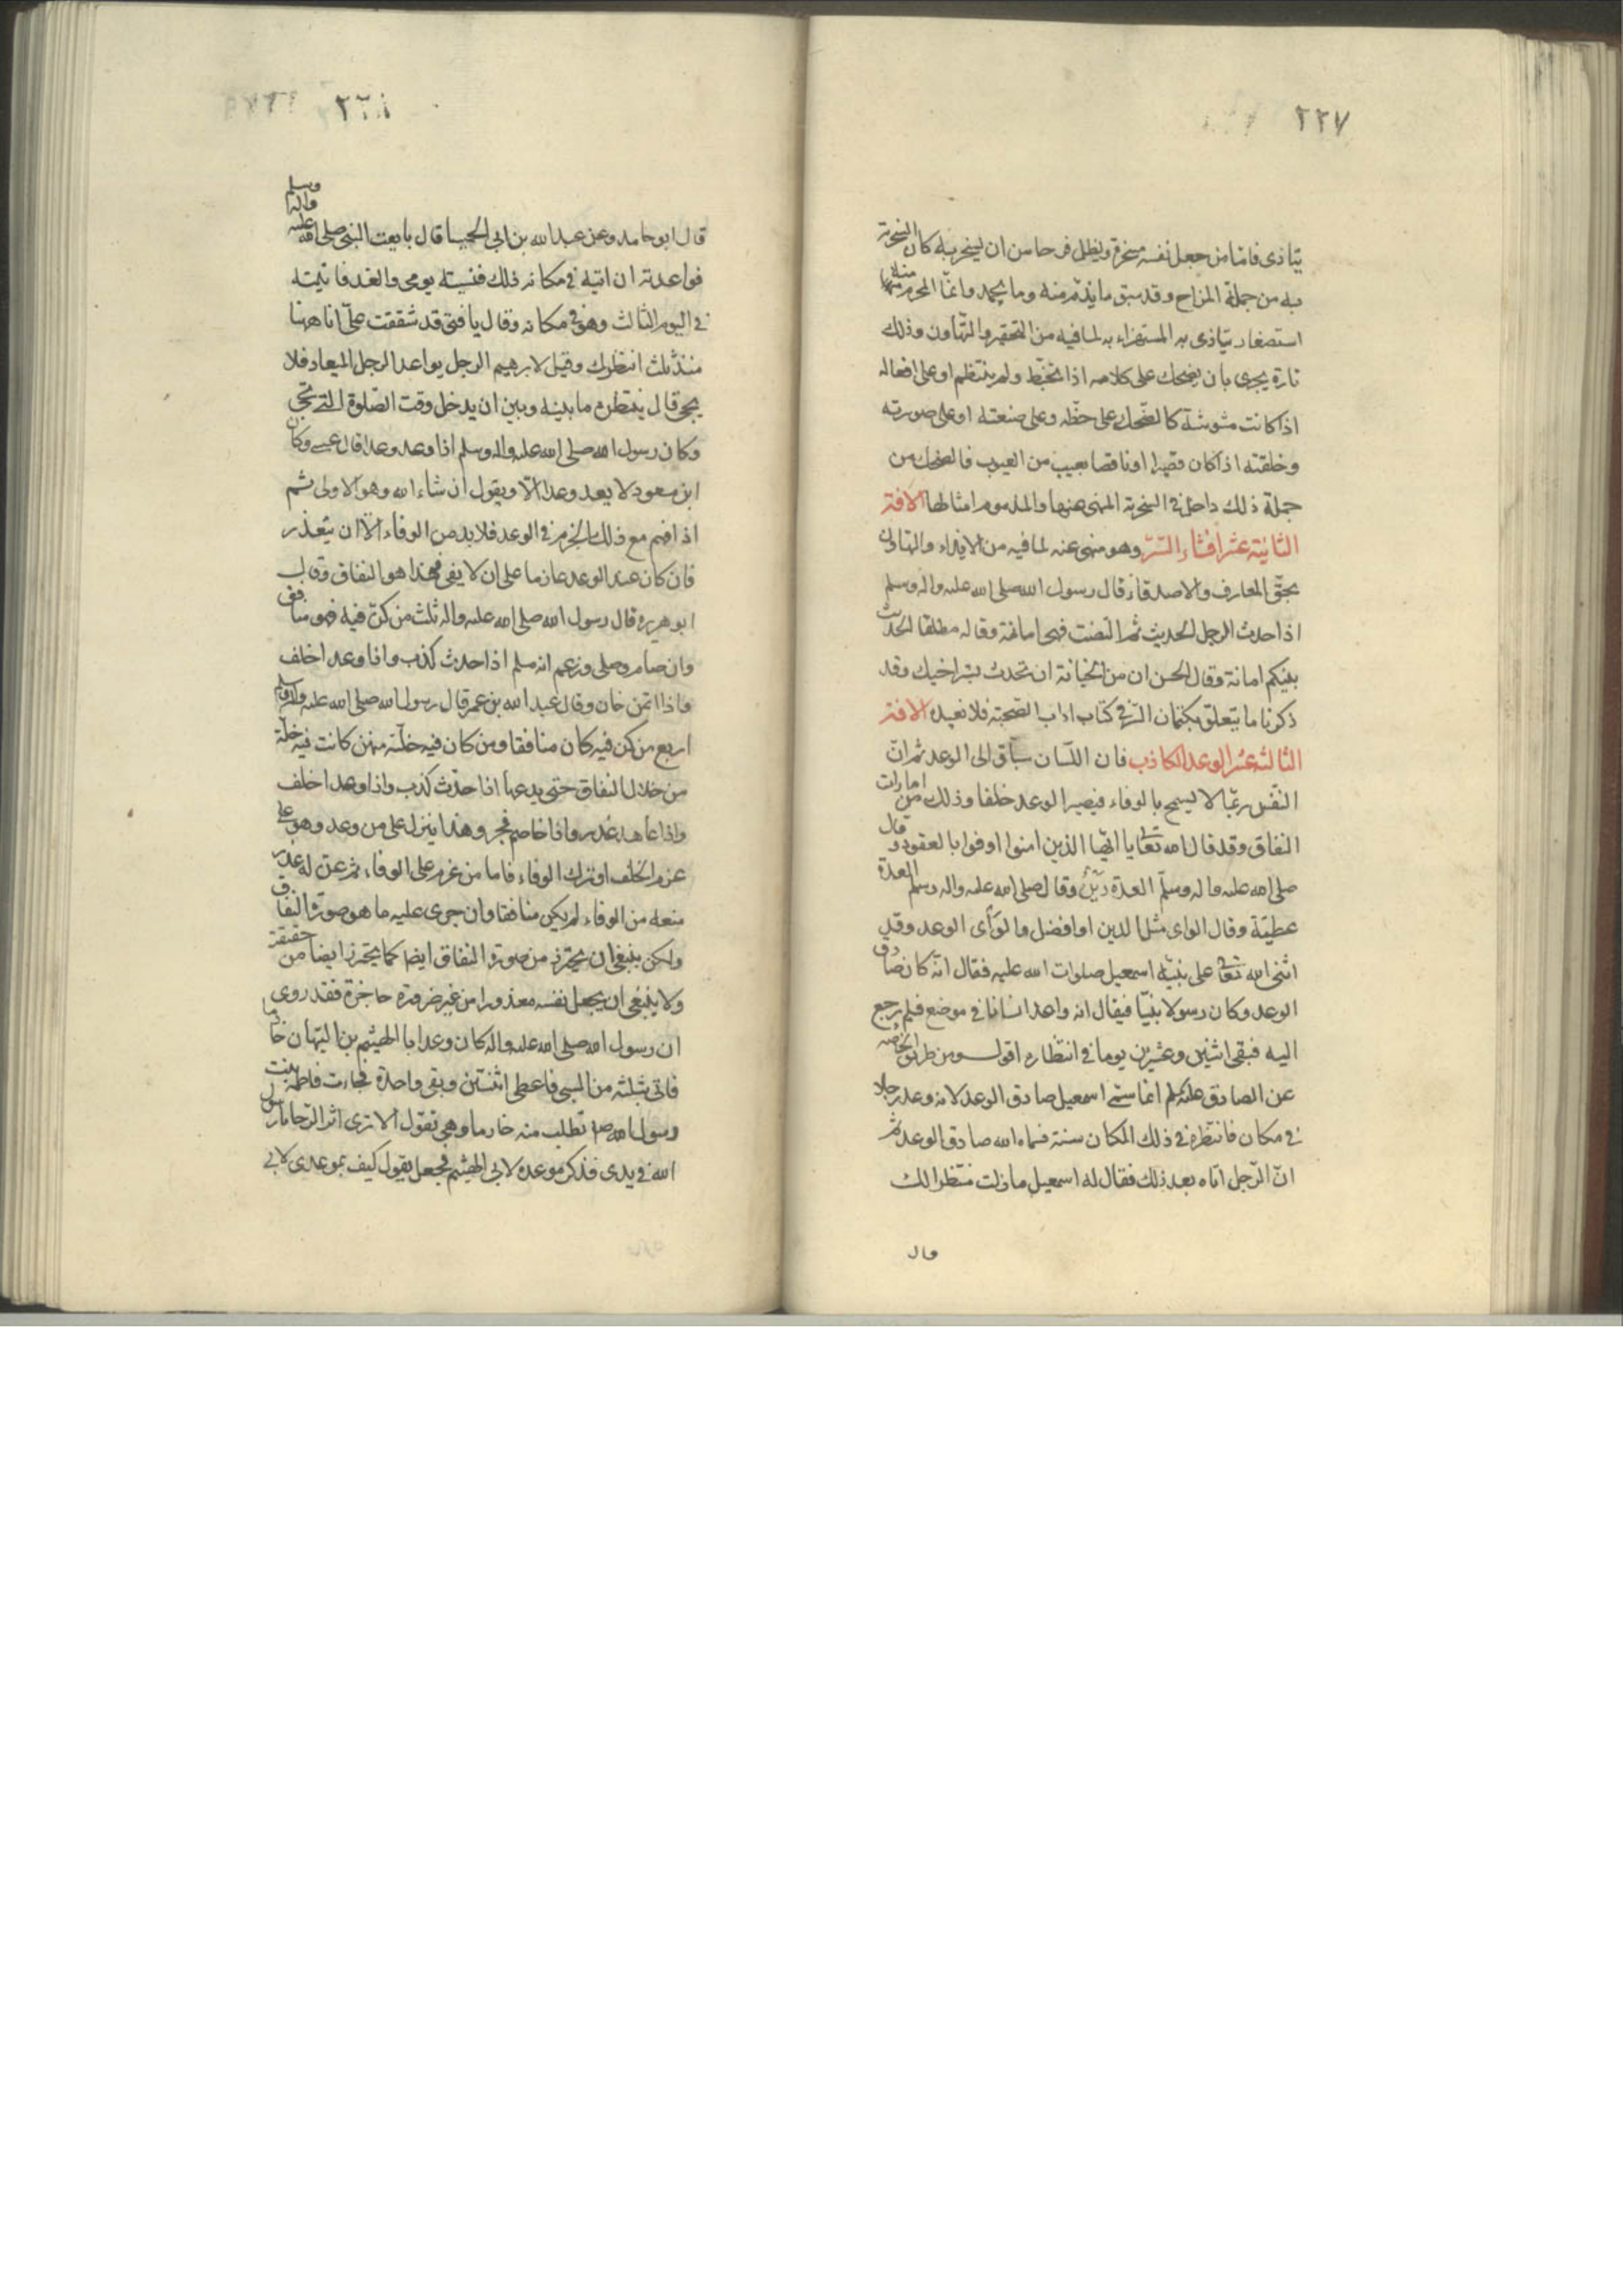 ٢٢٧
يتاذى فامّا من جعل نفسه مسخرة ويظل فرحا من ان يسخر به كان السخرية
به من جملة المزاح وقد سبق ما يذم منه وما يحمد وانّما المحرم منها
استصغار يتاذى به المستهزاء به لما فيه من التحقير والتّهاون وذلك
تارة يجرى بان يضحك على كلامه اذا تخبّط ولم ينتظم او على افعاله
اذا كانت مشوشة كالضحك على خطّه وعلى صنعته او على صورته
وخلقته اذا كان قصيرا او ناقصا بعيب من العيوب فالضحك من
جملة ذلك داخل فى السخرية المنهى عنها والمذموم امثالها الافة
الثانية عشر افشاء السّرّ وهو منهى عنه لما فيه من الايذاء والتهاون
بحقّ المعارف والاصدقاء قال رسول الله صلى الله عليه واله وسلم
اذا حدث الرجل الحديث ثم التفت فهى امانة وقال مطلقا الحديث
بينكم امانة وقال الحسن ان من الخيانة ان تحدث بسّر اخيك وقد
ذكرنا ما يتعلّق بكتمان السّر فى كتاب اداب الصحبة فلا نعيده الافة
الثالثة عشر الوعد الكاذب فان اللّسان سبّاق الى الوعد ثم انّ
النّفس ربّما لا يسمح بالوفاء فيصير الوعد خلفا وذلك من امارات
النفاق وقد قال الله تعالى يا ايّها الذين امنوا اوفوا بالعقود وقال
صلى الله عليه واله وسلّم العدة دَيْنٌ وقال صلى الله عليه واله وسلم العدة
عطيّة وقال الواى مثل الدين او افضل والوَأى الوعد وقد
اثنى الله تعالى على نبيّه اسمعيل صلوات الله عليه فقال انّه كان صادق
الوعد وكان رسولا نبيّا فيقال انه واعد انسانا فى موضع فلم يرجع
اليه فبقى اثنين وعشرين يوما فى انتظاره اقول ومن طريق الخاصّه
عن الصادق عليه السلم انما سمّى اسمعيل صادق الوعد لانه وعد رجلا
فى مكان فانتظره فى ذلك المكان سنة فسماه الله صادق الوعد ثم
انّ الرّجل اتاه بعد ذلك فقال له اسمعيل ما زلت منتظرا لك
قال
٢٢٨
قال ابو حامد وعن عبد الله بن ابى الحميسا قال بايعت النبى صلى الله عليه واله وسلم
فواعدته ان اتيه فى مكانه ذلك فنسيته يومى والغد فاتيته
فى اليوم الثالث وهو فى مكانه وقال يا فتى قد شققت علىّ انا ههنا
منذ ثلث انتظرك وقيل لابرهيم الرجل يواعد الرجل الميعاد فلا
يجئ قال ينتظره ما بينه وبين ان يدخل وقت الصّلوة التى تجئ
وكان رسول الله صلى الله عليه واله وسلم اذا وعد وعدا قال عسى وكان
ابن مسعود لا يعد وعدا الّا ويقول ان شاء الله وهو الاولى ثم
اذا فهم مع ذلك الجزم فى الوعد فلا بد من الوفاء الّا ان يتعذر
فان كان عند الوعد عازما على ان لا يفى فهذا هو النفاق وقال
ابو هريره قال رسول الله صلى الله عليه واله ثلث من كنّ فيه فهو منافق
وان صام وصلى وزعم انه مسلم اذا حدث كذب واذا وعد اخلف
واذا ائتمن خان وقال عبد الله بن عمر قال رسول الله صلى الله عليه واله وسلم
اربع من كن فيه كان منافقا ومن كان فيه خلّة منهن كانت فيه خلّة
من خلال النفاق حتى يدعها اذا حدّث كذب واذا وعد اخلف
واذا عاهد غدر واذا خاصم فجر وهذا ينزل على من وعد وهو على
عزم الخلف او ترك الوفاء فاما من عزم على الوفاء ثم عنّ له عذر
منعه من الوفاء لم يكن منافقا وان جرى عليه ما هو صورة النفاق
ولكن ينبغى ان يحترز من صورة النفاق ايضا كما يحترز ايضا من حقيقة
ولا ينبغى ان يجعل نفسه معذورا من غير ضرورة حاجزة فقد روى
ان رسول الله صلى الله عليه واله كان وعد ابا الهيثم بن التيهان خادما
فاتى بثلثة من السبى فاعطى اثنتين وبقى واحدة فجاءت فاطمة بنت
رسول الله ص تطلب منه خادما وهى تقول الا ترى اثر الرّحا يا رسول
الله فى يدى فذكر موعده لابى الهيثم فجعل يقول كيف بموعدى لابى